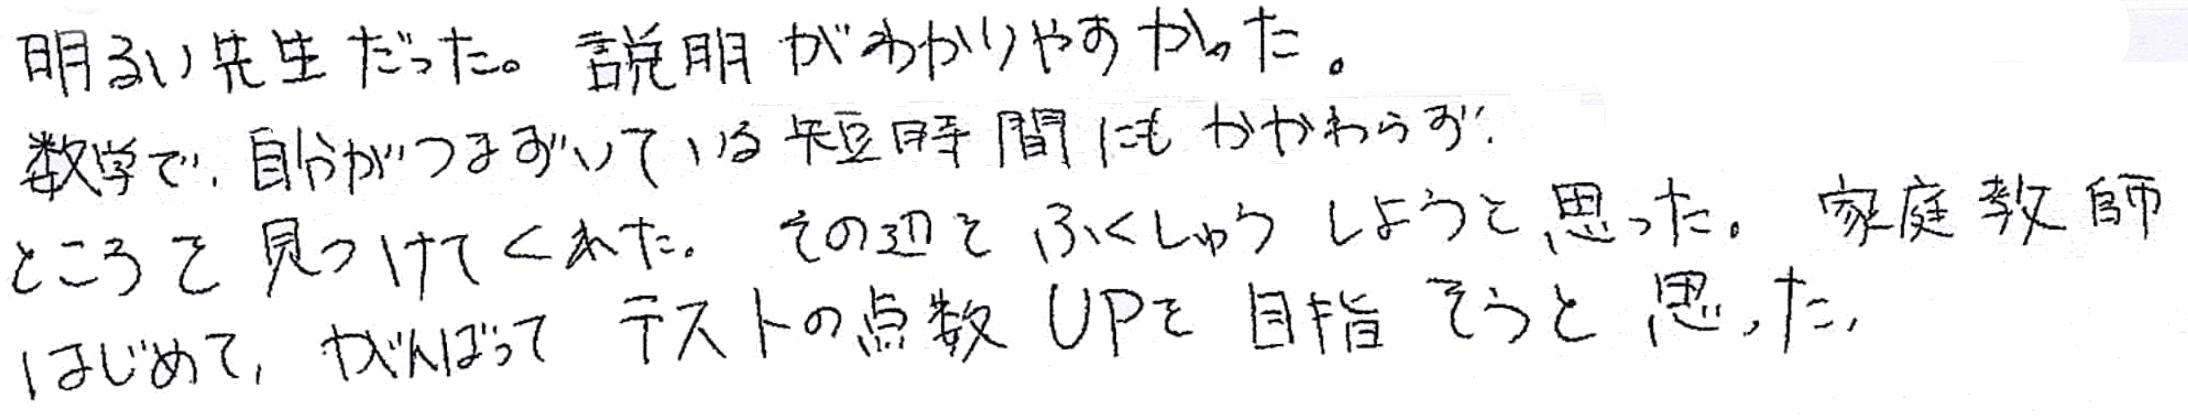 明るい先生だった。説明がわかりやすかった。
数学で、自分がつまずいている短時間にもかかわらず、
ところを見つけてくれた。その辺をふくしゅうしようと思った。家庭教師
はじめて、がんばってテストの点数UPを目指そうと思った、